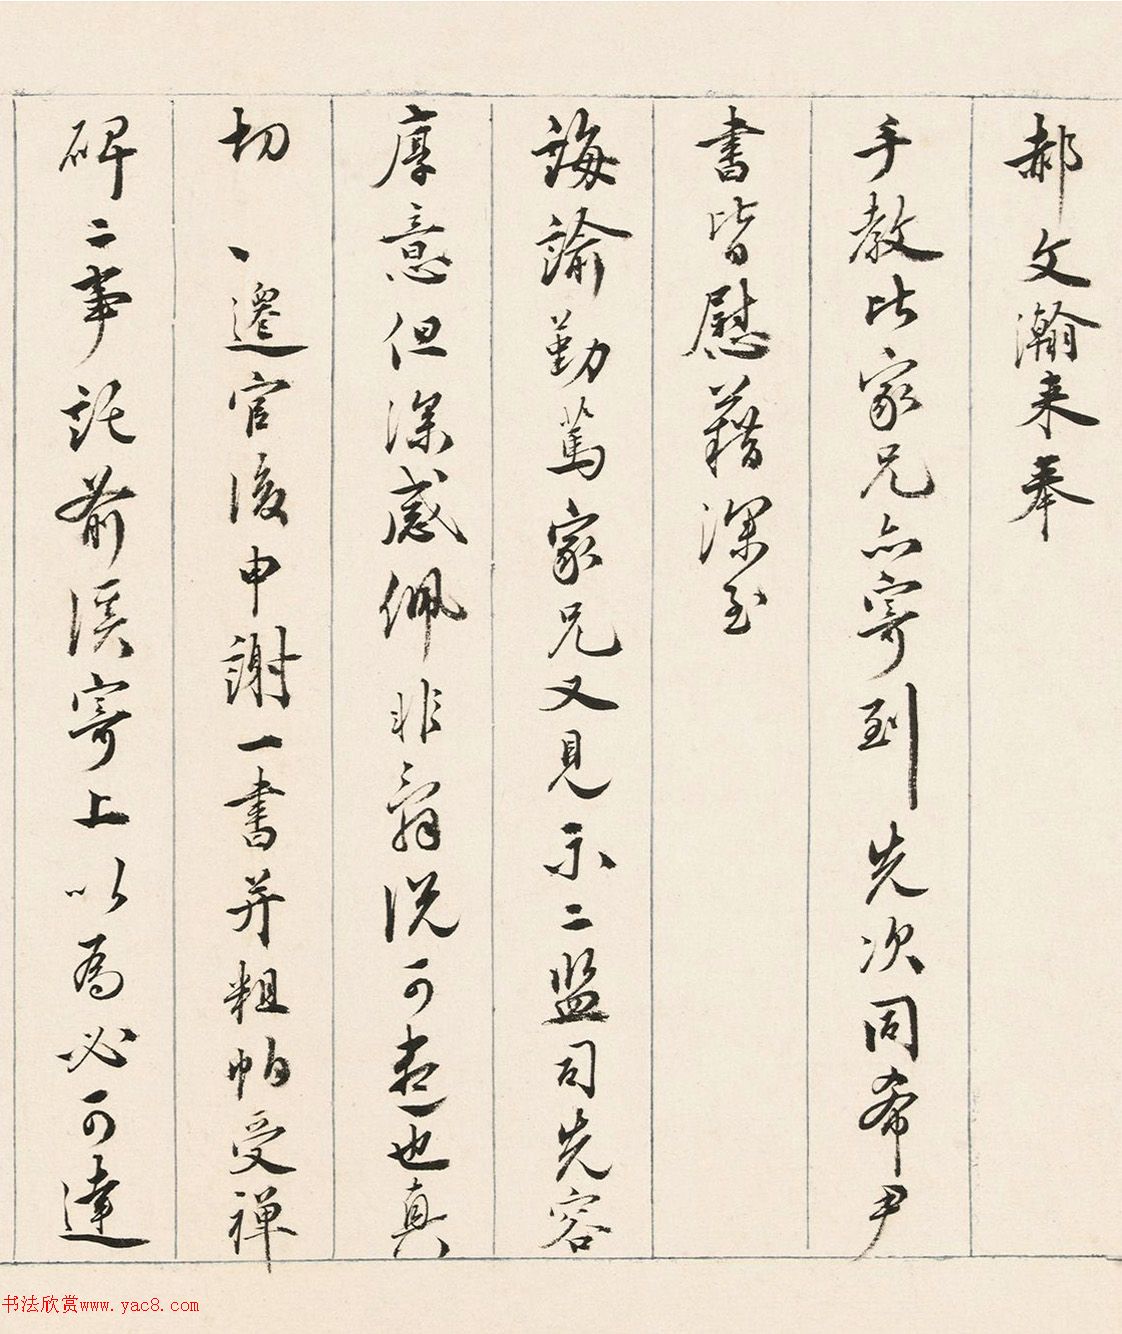 郝文瀚来奉
手教比家兄亦寄到先次同希尹
書皆慰藉深至
誨諭勤篤家兄又見示二监司先容
厚意但深感佩非辞说可造也真
切、遷官後申謝一書并粗帕受禅
碑二事託前溪寄上以为必可達
书法欣赏www.yac8.com